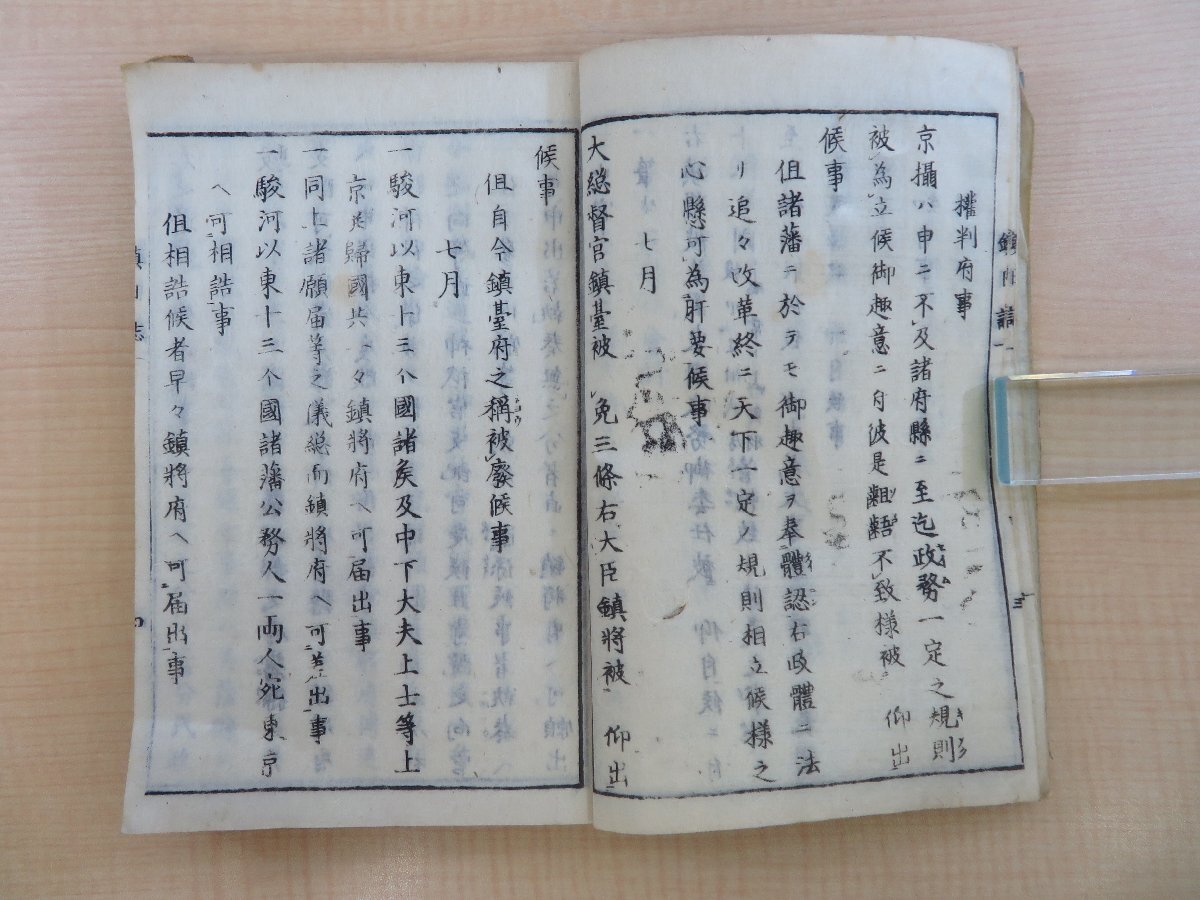 權判府事
京攝ハ申ニ不及諸府縣ニ至迄政務一定之規則
被為立候御趣意ニ付彼是齟齬不致様被 仰出
候事
但諸藩ニ於テモ御趣意ヲ奉體認右政體ニ法
リ追々改革終ニ天下一定ノ規則相立候様之
心懸可為肝要候事
七月
大總督官鎮臺被 免三條右大臣鎮將被 仰出
候事
但自今鎮臺府之稱被廢候事
七月
一駿河以東十三ヶ國諸矦及中下大夫上士等上
京歸國共々鎮將府ヘ可届出事
一同上諸願届等之儀總而鎮將府ヘ可差出事
一駿河以東十三个國諸藩公務人一両人宛東京
ヘ可相詰事
但相詰候者早々鎮將府ヘ可届出事